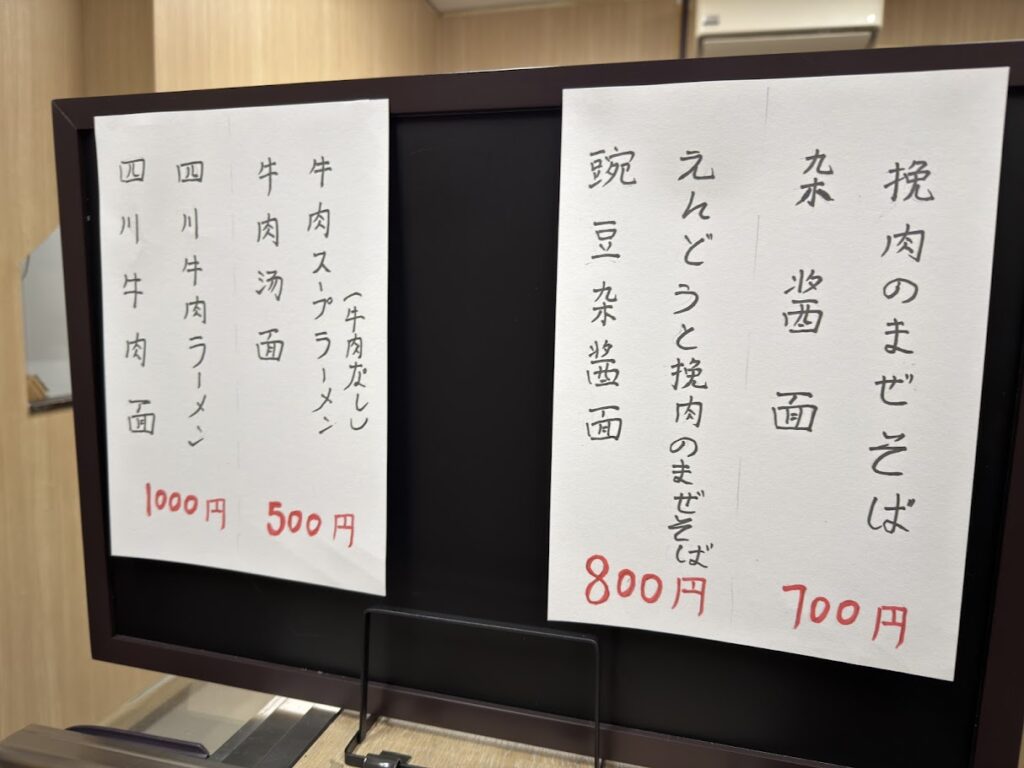 挽肉のまぜそば
杂醤面
700円
えんどうと挽肉のまぜそば
豌豆杂醤面
800円
牛肉スープラーメン
(牛肉なし)
牛肉汤面
500円
四川牛肉ラーメン
四川牛肉面
1000円